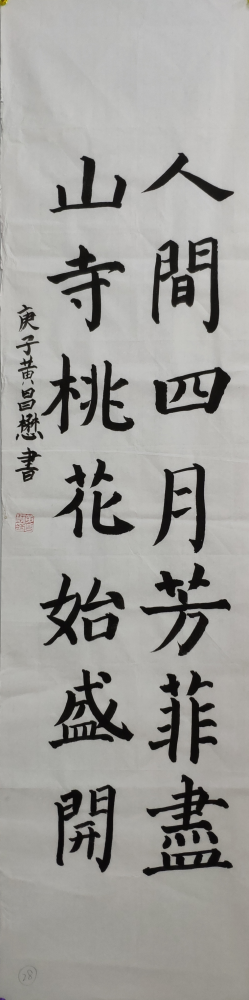 人間四月芳菲盡
山寺桃花始盛開
庚子黄昌懋書